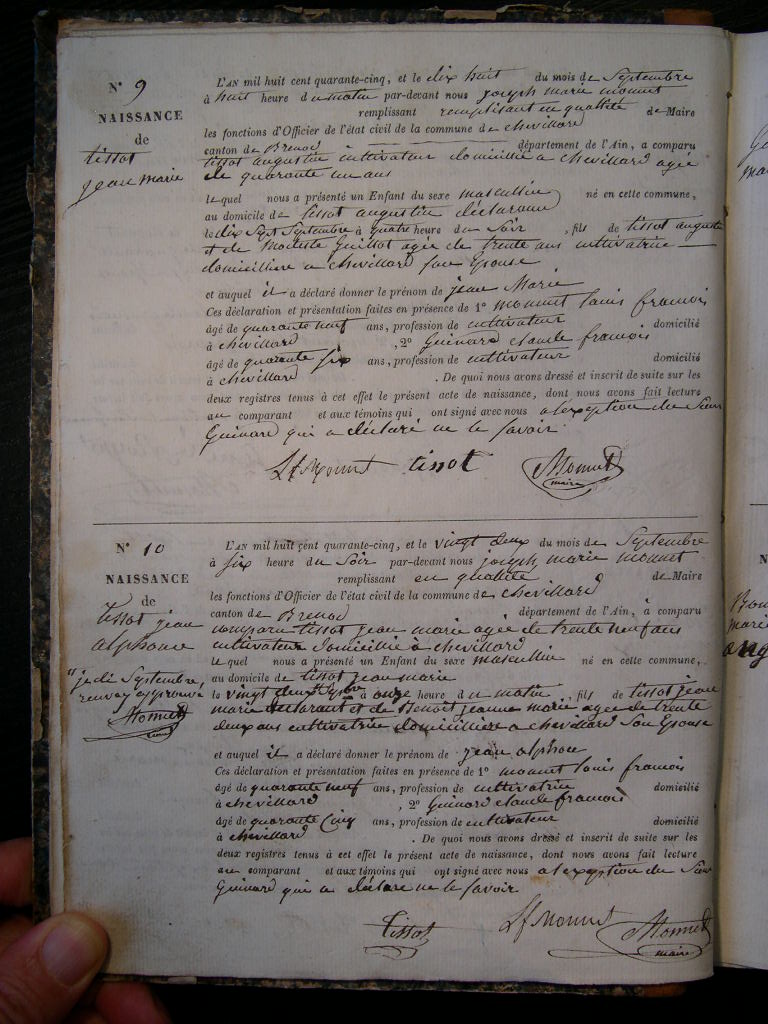 N° 9
NAISSANCE
de
tissot
jean marie
L'AN mil huit cent quarante-cinq, et le dix huit du mois de Septembre
à huit heure du matin par-devant nous joseph marie monnet
remplissant remplisant en quallité de Maire
les fonctions d'Officier de l'état civil de la commune de chevillard
canton de Brenod département de l'Ain, a comparu
tissot augustin cultivateur domicilié a chevillard agée
de quarante un ans
le quel nous a présenté un Enfant du sexe masculin né en cette commune,
au domicile de tissot augustin déclarant
le dix Sept Septembre à quatre heure du Soir, fils de tissot augustin
et de Modeste Guillot agée de trente ans cultivatrice
domicilliere a chevillard son Epouse
et auquel il a déclaré donner le prénom de jean Marie
Ces déclaration et présentation faites en présence de 1° monnet louis francois
âgé de quarante neuf ans, profession de cultivateur domicilié
à chevillard, 2° Guinard claude francois
âgé de quarante six ans, profession de cultivateur domicilié
à chevillard. De quoi nous avons dressé et inscrit de suite sur les
deux registres tenus à cet effet le présent acte de naissance, dont nous avons fait lecture
au comparant et aux témoins qui ont signé avec nous a lexeption du Sieur
Guinard qui a déclaré ne le savoir
Lf Monnet tissot JMonnet
maire
N° 10
NAISSANCE
de
tissot jean
alphonse
"je dis Septembre,
renvoy approuvé
JMonnet
maire
L'AN mil huit cent quarante-cinq, et le vingt deux du mois de Septembre
à six heure du Soir par-devant nous joseph marie monnet
remplissant en quallité de Maire
les fonctions d'Officier de l'état civil de la commune de chevillard
canton de Brenod département de l'Ain, à comparu
comparu tissot jean marie agée de trente neuf ans
cultivateur domicillié à chevillard
le quel nous a présenté un Enfant du sexe masculin né en cette commune,
au domicile de tissot jean marie
le vingt deux à onze heure du matin, fils de tissot jean
marie declarant et de Benoit jeanne marie agée de trente
deux ans cultivatrice domicilliere a chevillard Son Epouse
et auquel il a déclaré donner le prénom de jean alphonse
Ces déclaration et présentation faites en présence de 1° monnet louis francois
âgé de quarante neuf ans, profession de cultivatrice domicilié
à chevillard, 2° Guinard claude francois
âgé de quarante Cinq ans, profession de cultivateur domicilié
à chevillard. De quoi nous avons dressé et inscrit de suite sur les
deux registres tenus à cet effet le présent acte de naissance, dont nous avons fait lecture
au comparant et aux témoins qui ont signé avec nous a lexeption du Sieur
Guinard qui a déclare ne le savoir
Tissot Lf Monnet JMonnet
maire